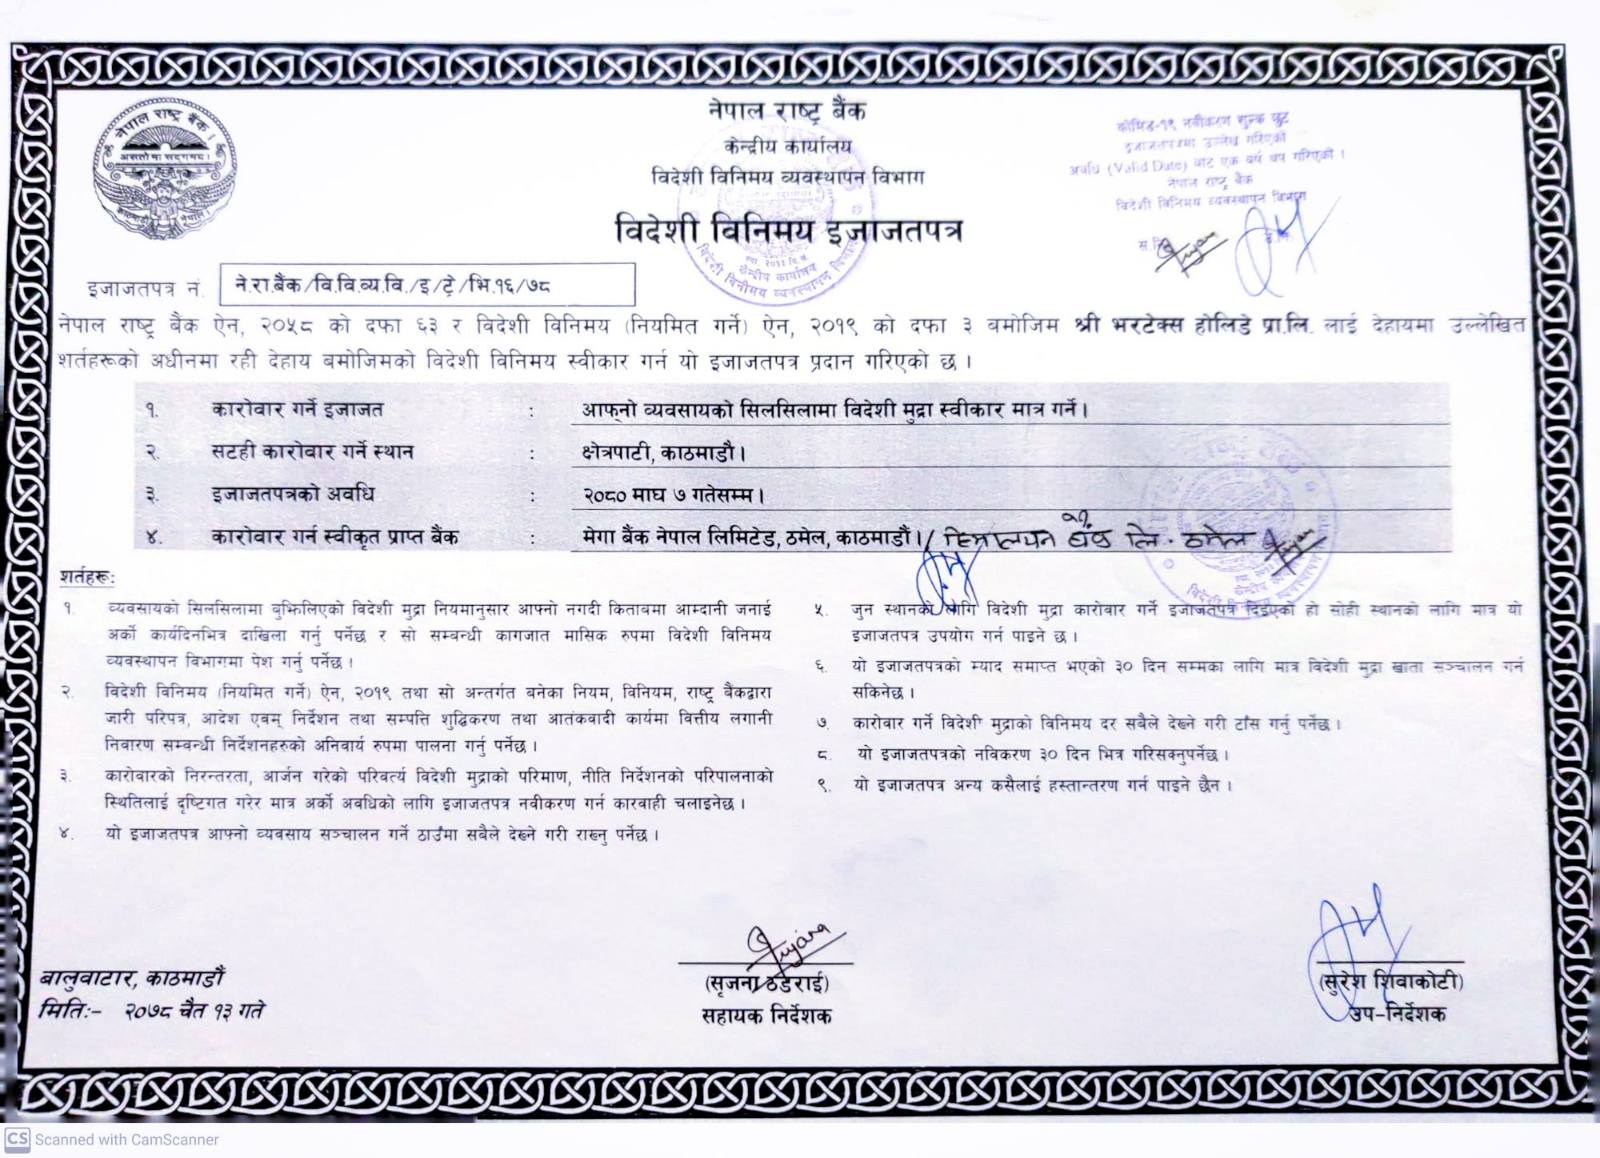 नेपाल राष्ट्र बैंक
केन्द्रीय कार्यालय
विदेशी विनिमय व्यवस्थापन विभाग
विदेशी विनिमय इजाजतपत्र
नेपाल राष्ट्र बैंक
असतोमा सदगमय।
कोभिड-१९ नवीकरण शुल्क छुट
इजाजतपत्रमा उल्लेख गरिएको
अवधि (Valid Date) बाट एक वर्ष थप गरिएको ।
नेपाल राष्ट्र बैंक
विदेशी विनिमय व्यवस्थापन विभाग
इजाजतपत्र नं. ने.रा.बैंक/वि.वि.व्य.वि./इ/ट्रे/भि.१६/७८
नेपाल राष्ट्र बैंक ऐन, २०५८ को दफा ६३ र विदेशी विनिमय (नियमित गर्ने) ऐन, २०१९ को दफा ३ बमोजिम श्री भरटेक्स होलिडे प्रा.लि. लाई देहायमा उल्लेखित
शर्तहरूको अधीनमा रही देहाय बमोजिमको विदेशी विनिमय स्वीकार गर्न यो इजाजतपत्र प्रदान गरिएको छ ।
१. कारोवार गर्ने इजाजत : आफ्नो व्यवसायको सिलसिलामा विदेशी मुद्रा स्वीकार मात्र गर्ने।
२. सटही कारोवार गर्ने स्थान : क्षेत्रपाटी, काठमाडौं।
३. इजाजतपत्रको अवधि : २०८० माघ ७ गतेसम्म।
४. कारोवार गर्न स्वीकृत प्राप्त बैंक : मेगा बैंक नेपाल लिमिटेड, ठमेल, काठमाडौं। / हिमालयन बैंक लि. ठमेल
शर्तहरू:
१. व्यवसायको सिलसिलामा बुझिलिएको विदेशी मुद्रा नियमानुसार आफ्नो नगदी किताबमा आम्दानी जनाई
अर्को कार्यदिनभित्र दाखिला गर्नु पर्नेछ र सो सम्बन्धी कागजात मासिक रुपमा विदेशी विनिमय
व्यवस्थापन विभागमा पेश गर्नु पर्नेछ ।
२. विदेशी विनिमय (नियमित गर्ने) ऐन, २०१९ तथा सो अन्तर्गत बनेका नियम, विनियम, राष्ट्र बैंकद्वारा
जारी परिपत्र, आदेश एवम् निर्देशन तथा सम्पत्ति शुद्धिकरण तथा आतंकवादी कार्यमा वित्तीय लगानी
निवारण सम्बन्धी निर्देशनहरुको अनिवार्य रुपमा पालना गर्नु पर्नेछ ।
३. कारोवारको निरन्तरता, आर्जन गरेको परिवर्त्य विदेशी मुद्राको परिमाण, नीति निर्देशनको परिपालनाको
स्थितिलाई दृष्टिगत गरेर मात्र अर्को अवधिको लागि इजाजतपत्र नवीकरण गर्न कारवाही चलाइनेछ ।
४. यो इजाजतपत्र आफ्नो व्यवसाय सञ्चालन गर्ने ठाउँमा सबैले देख्ने गरी राख्नु पर्नेछ ।
५. जुन स्थानको लागि विदेशी मुद्रा कारोवार गर्ने इजाजतपत्र दिईएको हो सोही स्थानको लागि मात्र यो
इजाजतपत्र उपयोग गर्न पाइने छ ।
६. यो इजाजतपत्रको म्याद समाप्त भएको ३० दिन सम्मका लागि मात्र विदेशी मुद्रा खाता सञ्चालन गर्न
सकिनेछ ।
७. कारोवार गर्ने विदेशी मुद्राको विनिमय दर सबैले देख्ने गरी टाँस गर्नु पर्नेछ ।
८. यो इजाजतपत्रको नविकरण ३० दिन भित्र गरिसक्नुपर्नेछ ।
९. यो इजाजतपत्र अन्य कसैलाई हस्तान्तरण गर्न पाइने छैन ।
बालुवाटार, काठमाडौं
मिति:- २०७८ चैत १३ गते
(सृजना ठडेराई)
सहायक निर्देशक
(सुरेश शिवाकोटी)
उप-निर्देशक
CS Scanned with CamScanner